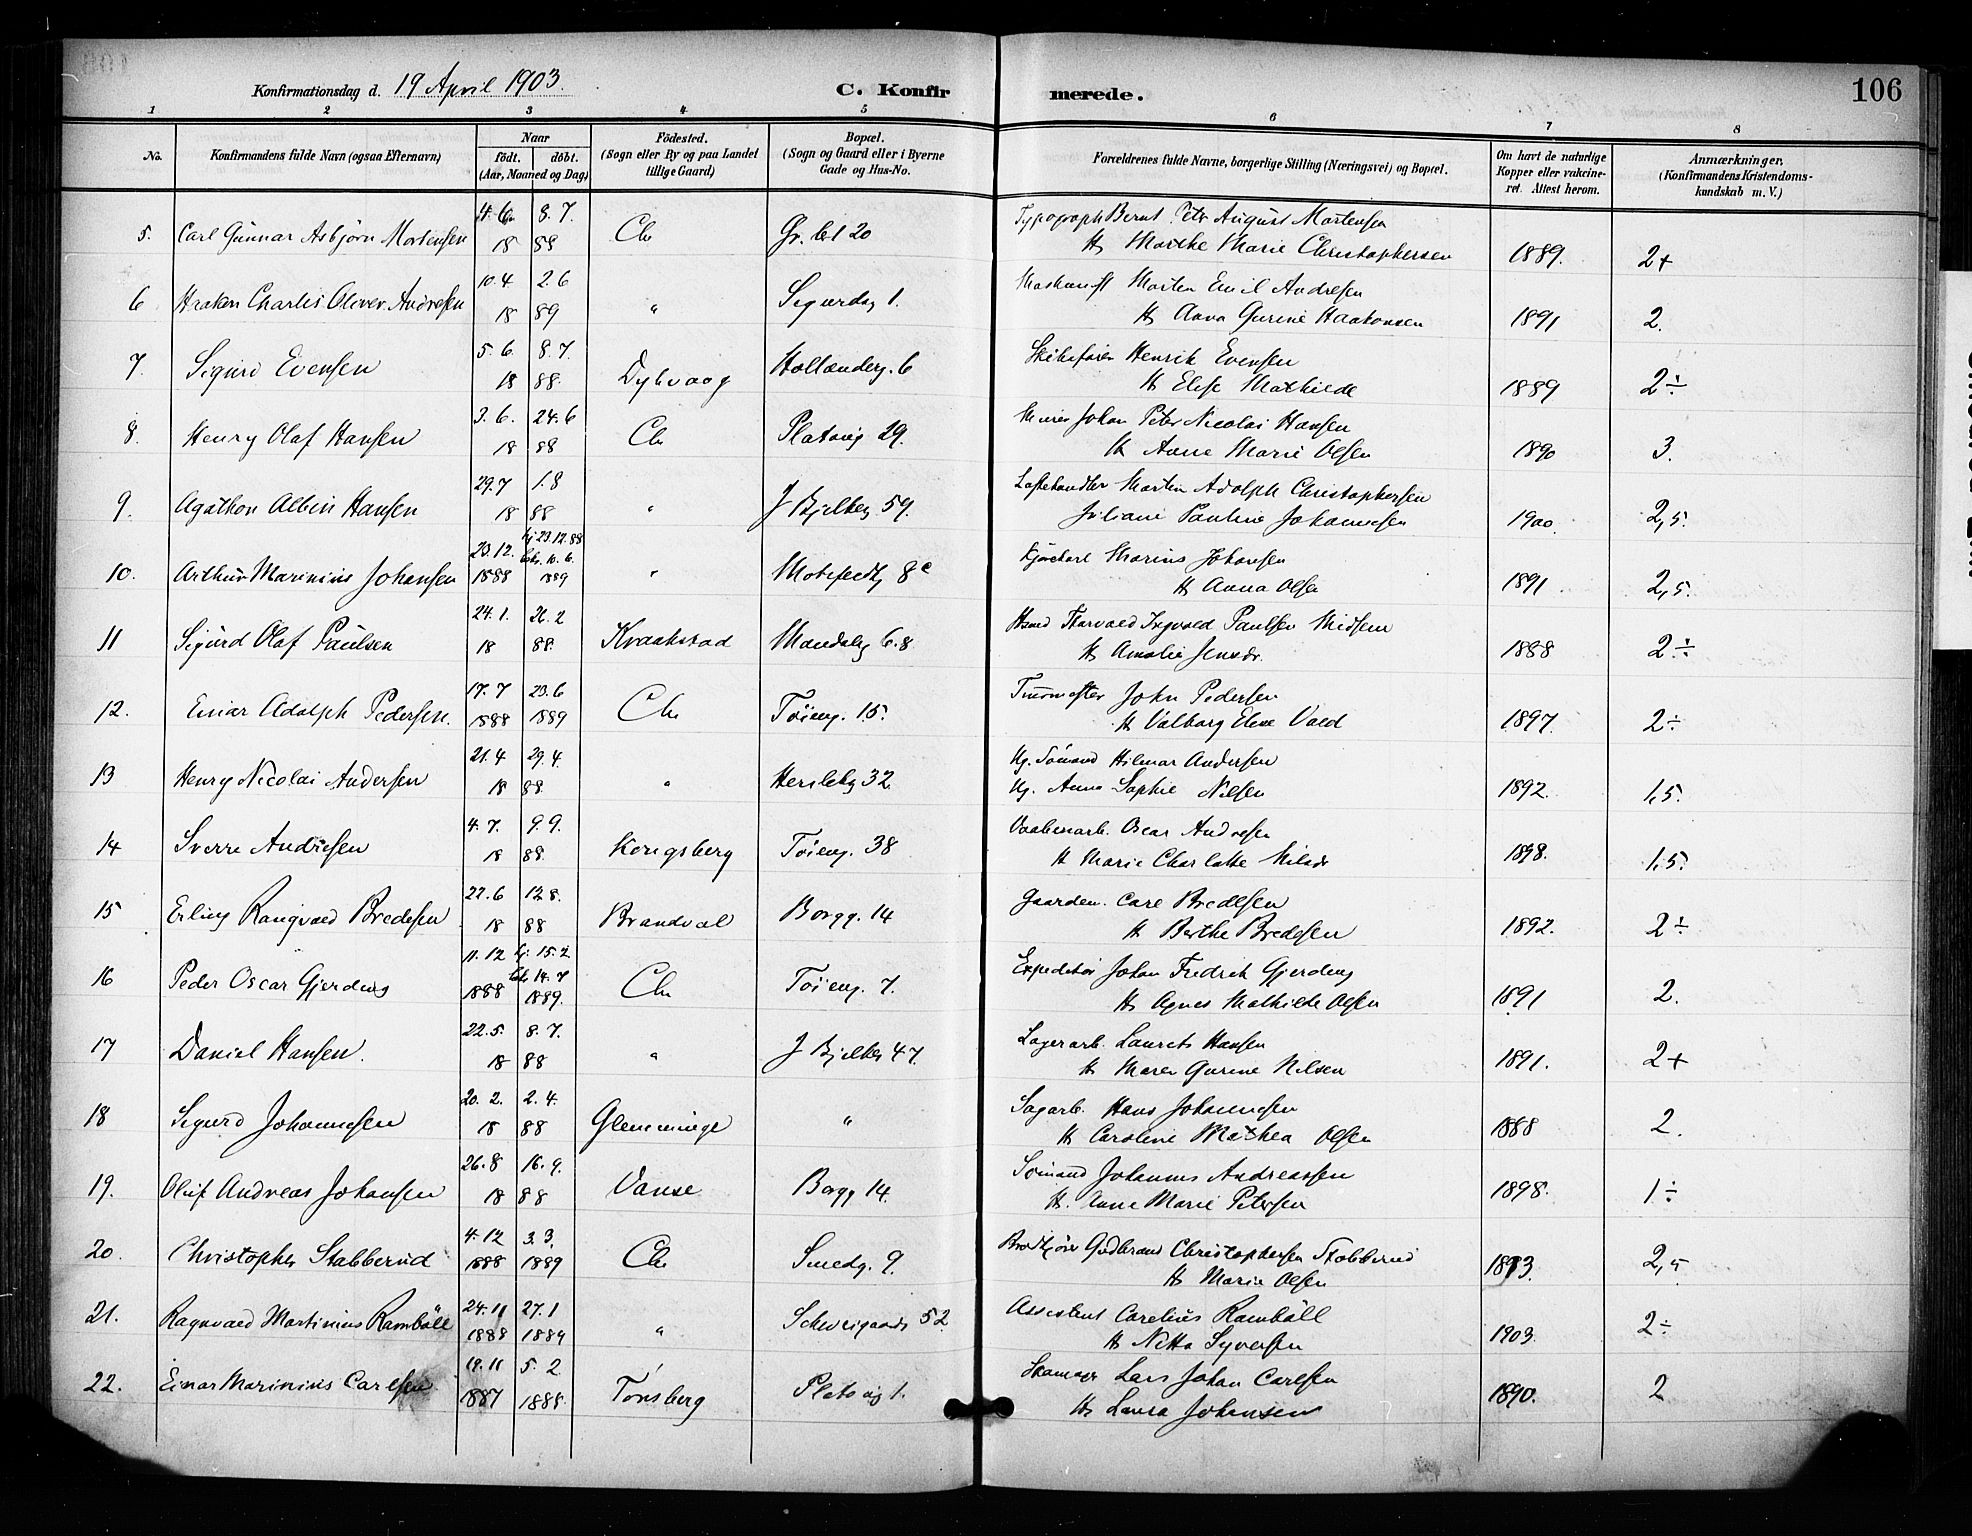 106
Konfirmationsdag d. 19 April 1903.
C. Konfirmerede.
1 2 3 4 5 6 7 8
No.
Konfirmandens fulde Navn (ogsaa Efternavn)
Naar
födt. döbt.
(Aar, Maaned og Dag)
Födested.
(Sogn eller By og paa Landet
tillige Gaard)
Bopæl.
(Sogn og Gaard eller i Byerne
Gade og Hus-No.
Forældrenes fulde Navne, borgerlige Stilling (Næringsvei) og Bopæl.
Om havt de naturlige
Kopper eller vakcine-
ret. Attest herom.
Anmærkninger,
(Konfirmandens Kristendoms-
kundskab m. V.)
4. 6. 8. 7. Typograph Bernt Petr August Mortensen
5. Carl Gunnar Asbjørn Mortensen 18 88 Chr Gr. 20 H. Marthe Marie Christophersen 1889. 2+
10.4 2.6 Maskinist Morten Emil Andresen
6 Haakon Charles Oliver Andresen 18 89 " Sigurdsg 1. H. Anna Gurine Haakonsen 1891 2.
5. 6. 8. 7. Skibsfører Henrik Evensen
7. Sigurd Evensen 18 88. Dybvaag Hollænderg. 6 H. Elise Mathilde 1889 2÷
3. 6. 24.6 Murer Johan Peter Nicolai Hansen
8. Henry Olaf Hansen 18 88 Chr Platoug 29. H. Anne Marie Olsen 1890 3.
29.7 1.8 Martin Adolph Christophersen
9. Agathon Albin Hansen 18 88 " J Bjelkeg 59. Juliane Pauline Johannesen 1900. 2,5.
23.12. hj 23.12.88 bekr. 10. 6. Marius Johansen
10. Arthur Marinius Johansen 1888 1889 " Motzfeldtg 8c H. Anna Olsen 1891 2,5.
24.1. 26.2 Thorvald Ingvald Paulsen
11 Sigurd Olaf Paulsen 18 88. Kraakstad Mandalsg 6.8 H. Amalie Jensdr. 1888 2÷
17.7 23.6 Murmester John Pedersen
12. Einar Adolph Pedersen. 1888 1889 Chr Töieng. 15. H. Valborg Elene Vold 1897. 2÷
21.4 29.4. Ug. Sömand Hilmar Andersen
13 Henry Nicolai Andersen 18 88. " Herslebg 32. Ug. Anna Sophie Nilsen 1892. 1,5.
4. 7. 9. 9. Vaabenarb. Oscar Andresen
14 Sverre Andresen 18 88. Kongsberg Töieng. 38 H Marie Charlotte Nilsdr 1898. 1,5.
22.6 12.8. Gaardm. Carl Bredesen
15 Erling Rangvald Bredesen 18 88 Brandval Borgg. 14 H. Berthe Bredesen 1892. 2÷
11.12 hj. 15.2 bekr 14.7 Expeditör Johan Fredrik Gjerding
16 Peder Oscar Gjerding 1888 1889. Chr Töieng. 7. H. Agnes Mathilde Olsen 1891 2.
22.5. 8. 7. Lagerarb. Laurits Hansen
17 Daniel Hansen. 18 88 " J Bjelkeg 47. H. Maren Gurine Nilsen 1891. 2+
20. 2. 2. 4. Sagarb. Hans Johannesen
18 Sigurd Johannesen 18 88 Glemminge " H Caroline Mathea Olsen 1888 2.
26.8 16.9. Sömand Johannes Andreassen
19. Oluf Andreas Johansen 18 88 Vanse Borgg 14. H. Anne Marie Petersen 1898. 1÷
4.12 3.3. Brödkjörer Gudbrand Christophersen Stabberud
20. Christopher Stabberud 1888 1889 Chr Smedg. 9. H. Marie Olsen 1893. 2,5
24.11 27.1 Assistent Carelius Ramböll
21. Ragnvald Martinius Ramböll 1888 1889 " Schweigaards 52. H Netta Syversen 1903. 2÷
19.11 5. 2 Skomager Lars Johan Carlsen
22. Einar Marinius Carlsen 1887 1888. Tönsberg Platoug 1. H. Laura Johansen 1890. 2